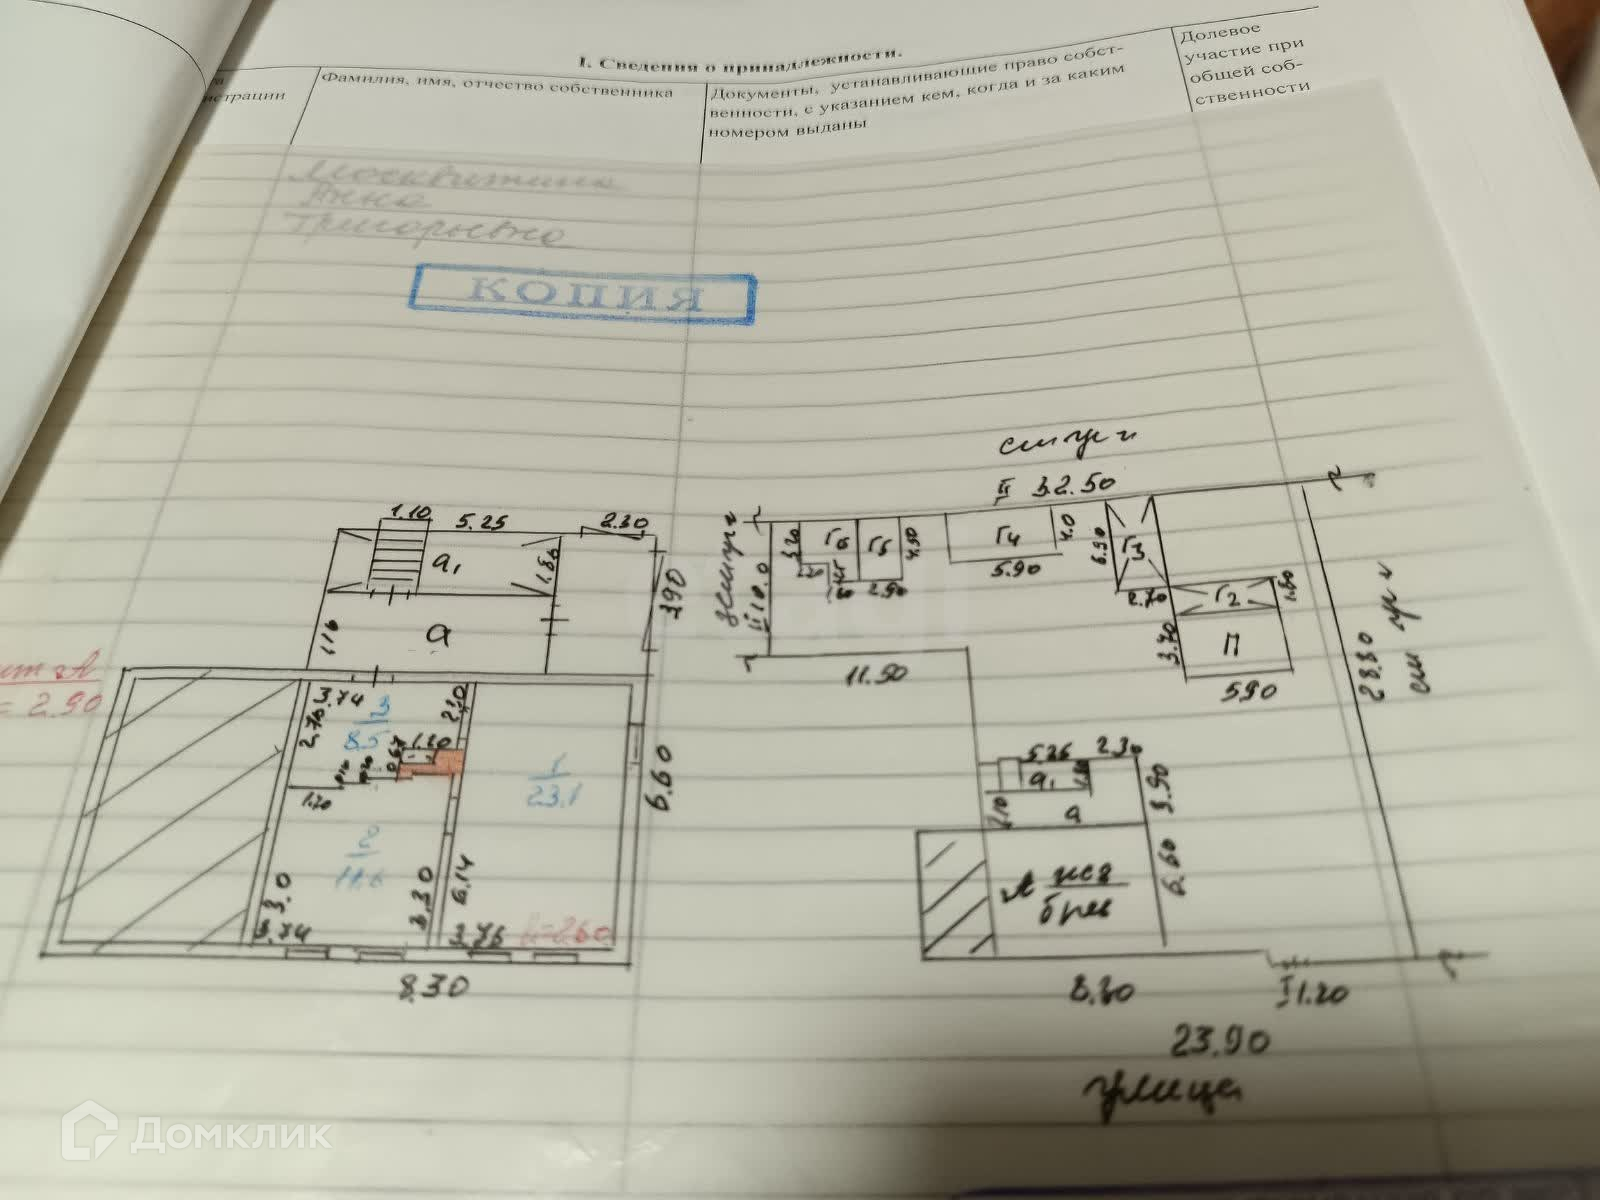 I. Сведения о принадлежности.
Фамилия, имя, отчество собственника
Документы, устанавливающие право собст-
венности, с указанием кем, когда и за каким
номером выданы
Долевое
участие при
общей соб-
ственности
страции
Москвитина
Анна
Григорьевна
КОПИЯ
II 32.50
1.10 5.25 2.30
а₁ 1.80
3.90
а
= 2.90
3.74
2.70
3
8.5
2.10
0.67 1.20
1.20
1
23.1
6.60
2
3.0
3.30
6.14
3.74
3.76
h=2.60
8.30
III 10.0
3.20
Г6
Г5
4.90
2.90
Г4
4.0
5.90
6.90
Г3
2.70
Г2
1.80
3.70
П
5.90
28.80
11.50
5.25 2.30
а₁
а
3.90
А
6.60
8.30
I 1.20
23.90
улица
Домклик